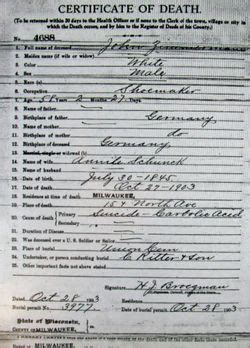 CERTIFICATE OF DEATH.
(To be returned within 30 days to the Health Officer or if none to the Clerk of the town, village or city in
which the Death occurs, and by him to the Register of Deeds of his County.)
No. 4688
1. Full name of deceased John Zimmerman
2. Maiden name (if wife or widow)
3. Color White
4. Sex Male
5. Race
6. Occupation Shoemaker
7. Age 58 Years 2 Months 27 Days
8. Birthplace Germany
9. Name of father
10. Birthplace of father Germany
11. Name of mother
12. Birthplace of mother do
13. Birthplace of deceased Germany
14. Name of wife Annila Schunck
15. Name of husband
16. Date of birth July 30 - 1845
17. Date of death Oct 27 - 1903
MILWAUKEE,
North Ave
Cause of Death Primary Suicide - Carbolic Acid
Secondary
21. Duration of Disease
22. Was deceased ever a U. S. Soldier or Sailor
23. Place of burial Union Cem
24. Undertaker, or person conducting burial C. Ritter & Son
Other important facts not above stated
H J Broegman
Dated Oct 28 1903
Burial permit No. 3977 Date of burial Oct 28 1903
State of Wisconsin,
County of MILWAUKEE.